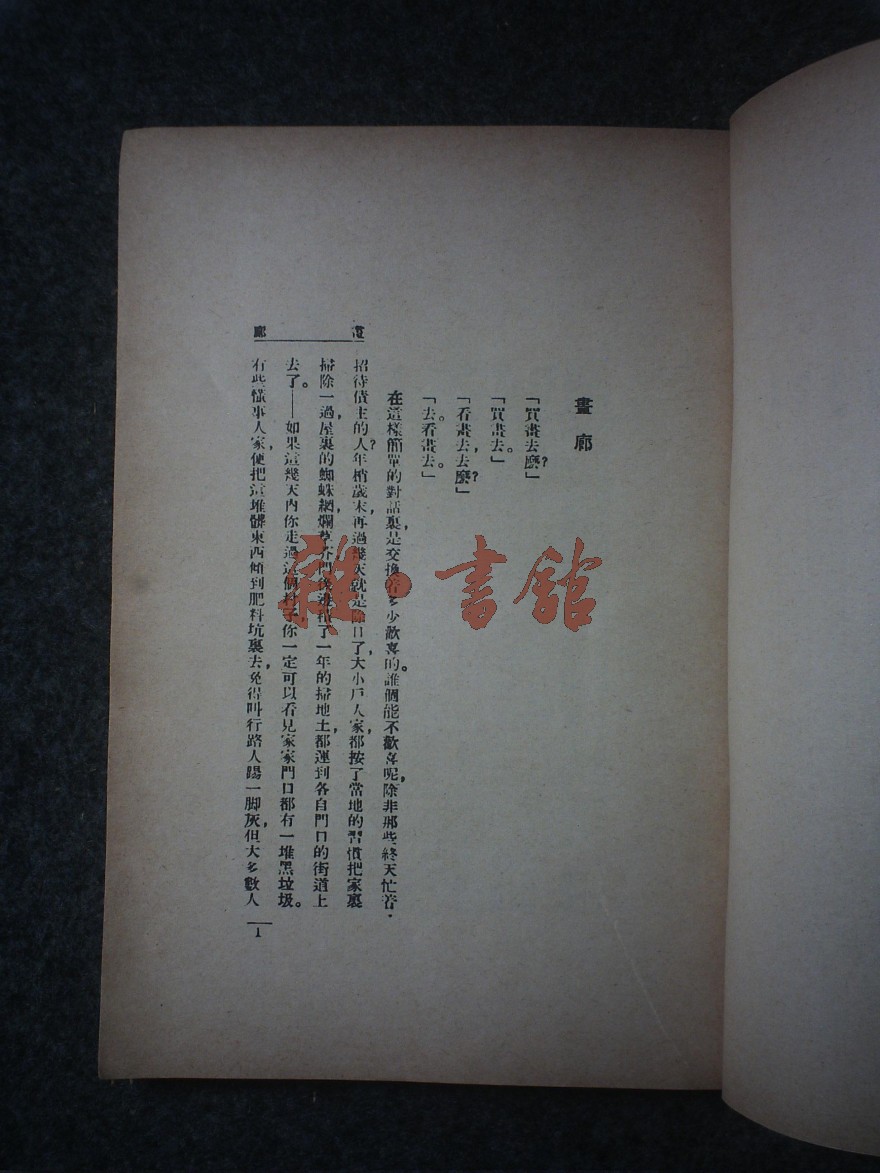 畫廊
「買畫去麼？」
「買畫去。」
「看畫去，去麼？」
「去看畫去。」
在這樣簡單的對話裏，是交換着多少歡喜的。誰個能不歡喜呢，除非那些終天忙着
招待債主的人？年梢歲末，再過幾天就是除日了，大小戶人家，都按了當地的習慣把家裏
掃除一過，屋裏的蜘蛛網，爛草芥，門後邊積了一年的掃地土，都運到各自門口的街道上
去了。——如果這幾天內你走過這個村子，你一定可以看見家家門口都有一堆黑垃圾。
有些懂事人家，便把這堆髒東西傾到肥料坑裏去，免得叫行路人踢一脚灰，但大多數人
畫廊
1
雜·書館